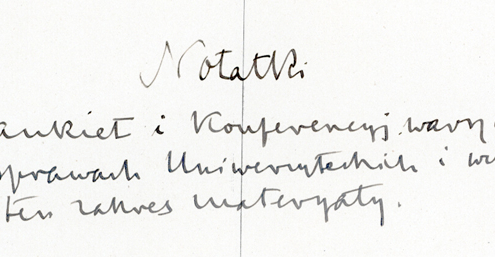 Notatki
ankiet i Konferencyj
sprawach Uniwersyteckich i
ten zakres materyały.